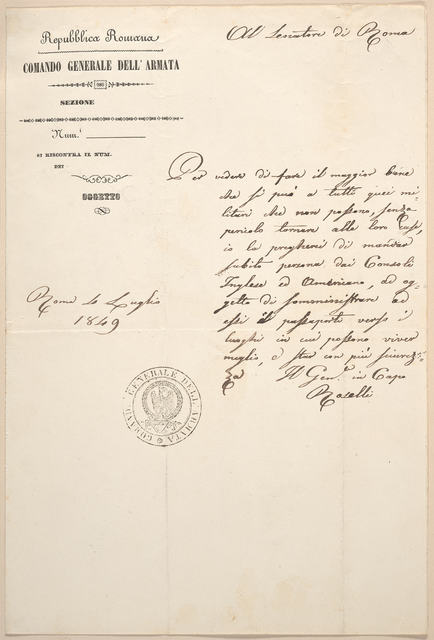 Repubblica Romana
COMANDO GENERALE DELL'ARMATA
SEZIONE
Num.º
SI RISCONTRA IL NUM.
DEI
OGGETTO
Al Senatore di Roma
Per vedere di fare il maggior bene
che si può a tutti quei mi-
litari che non possono, senza
pericolo tornare alle loro Case,
io la pregherei di mandare
subito persona dai Consoli
Inglese ed Americano, ad og-
getto di somministrare ad
essi il passaporto verso i
luoghi in cui possono viver
meglio, e star con più sicurez-
za Il Gen.e in Capo
Roselli
Roma 4 Luglio
1849
COMANDO GENERALE DELL'ARMATA